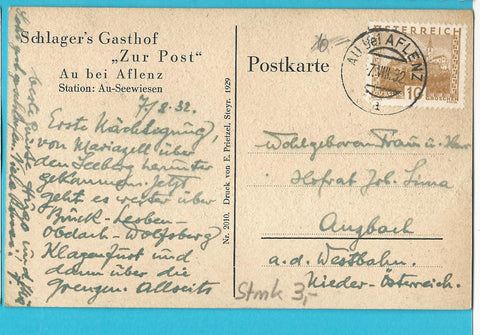 Schlager's Gasthof
„Zur Post"
Au bei Aflenz
Station: Au-Seewiesen
7/8. 32.
Erste Nächtigung
von Mariazell über
den Seeberg herunter
gekommen. Jetzt
geht es weiter über
Bruck - Leoben -
Obdach - Wolfsberg
Klagenfurt und
dann über die
Grenze. Allseits
beste Grüße
Nr. 2010. Druck von E. Prietzel, Steyr. 1929
Postkarte
ÖSTERREICH
10
GROSCHEN
AU bei AFLENZ
7.VIII.32
a
Wohlgeboren Frau u. Herr
Hofrat Joh. Sima
Augbach
a. d. Westbahn.
Nieder-Österreich.
Stmk 3,-